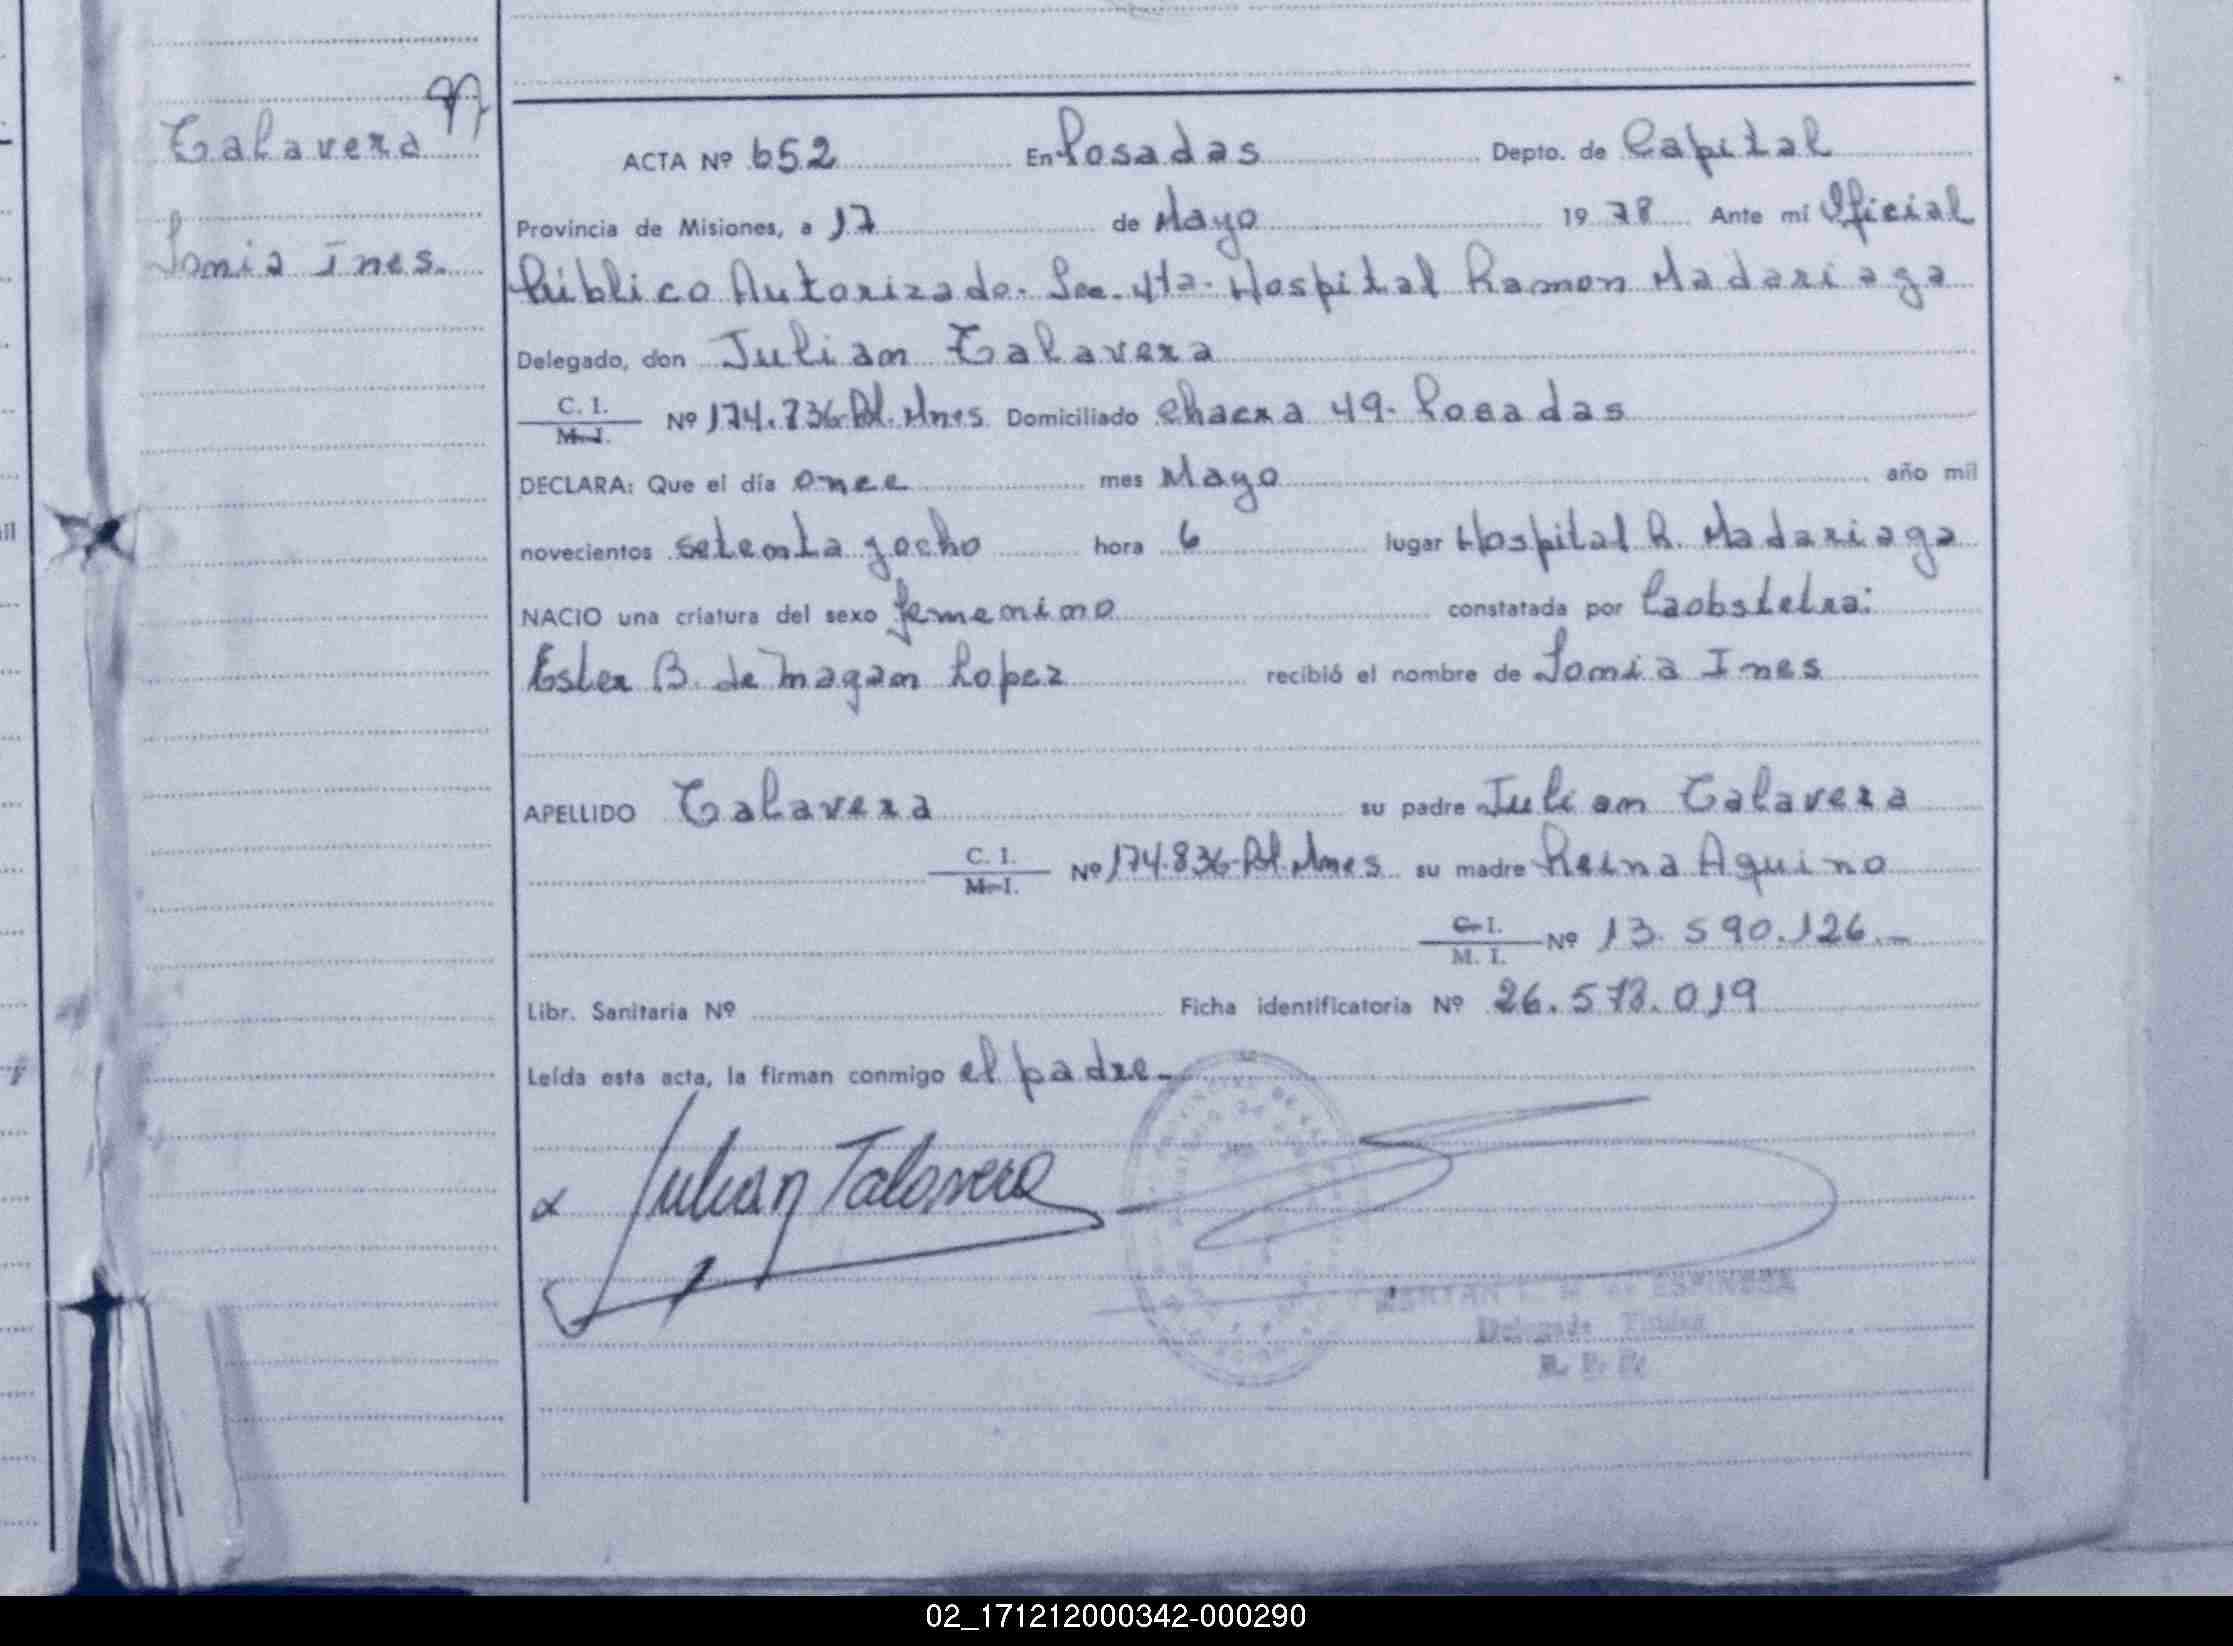 Talavera
Sonia Ines.
ACTA Nº 652 En Posadas Depto. de Capital
Provincia de Misiones, a 17 de Mayo 19 78 Ante mí Oficial
Público Autorizado. Sec. 4ta. Hospital Ramon Madariaga
Delegado, don Julian Talavera
C. I.
M. I. Nº 174.736-Pol. Mnes Domiciliado Chacra 49. Posadas
DECLARA: Que el día once mes Mayo año mil
novecientos setenta y ocho hora 6 lugar Hospital R. Madariaga
NACIO una criatura del sexo femenino constatada por La obstetra:
Ester B. de Magan Lopez recibió el nombre de Sonia Ines
APELLIDO Talavera su padre Julian Talavera
C. I.
M. I. Nº 174.836-Pol. Mnes su madre Reina Aquino
C. I.
M. I. Nº 13.590.126.-
Libr. Sanitaria Nº Ficha identificatoria Nº 26.573.019
Leída esta acta, la firman conmigo el padre.-
Julian Talavera
ESPINOSA
Delegada Titular
02_171212000342-000290